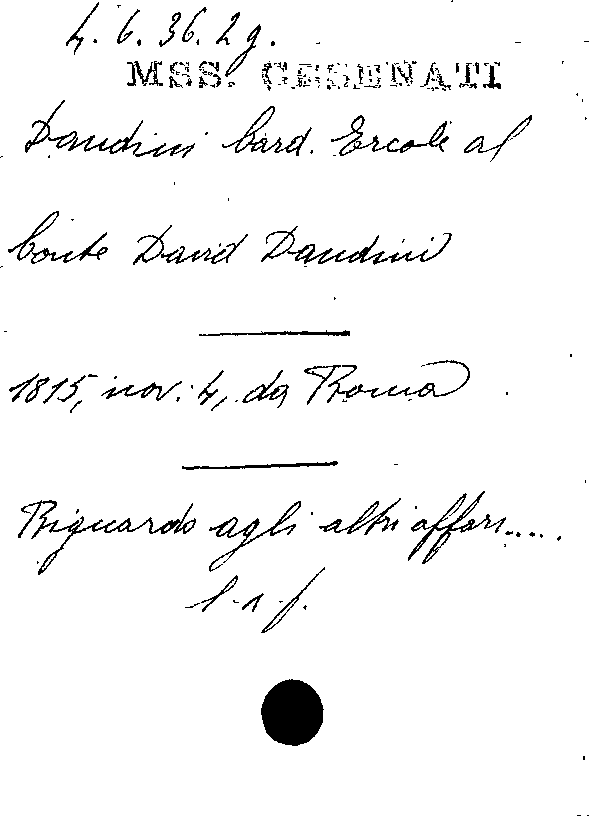 4. 6. 36. 2 g.
MSS. CESENATI
Dandini Card. Ercole al
Conte David Dandini
1815, nov. 4, da Roma
Riguardo agli altri affari.....
l. a f.